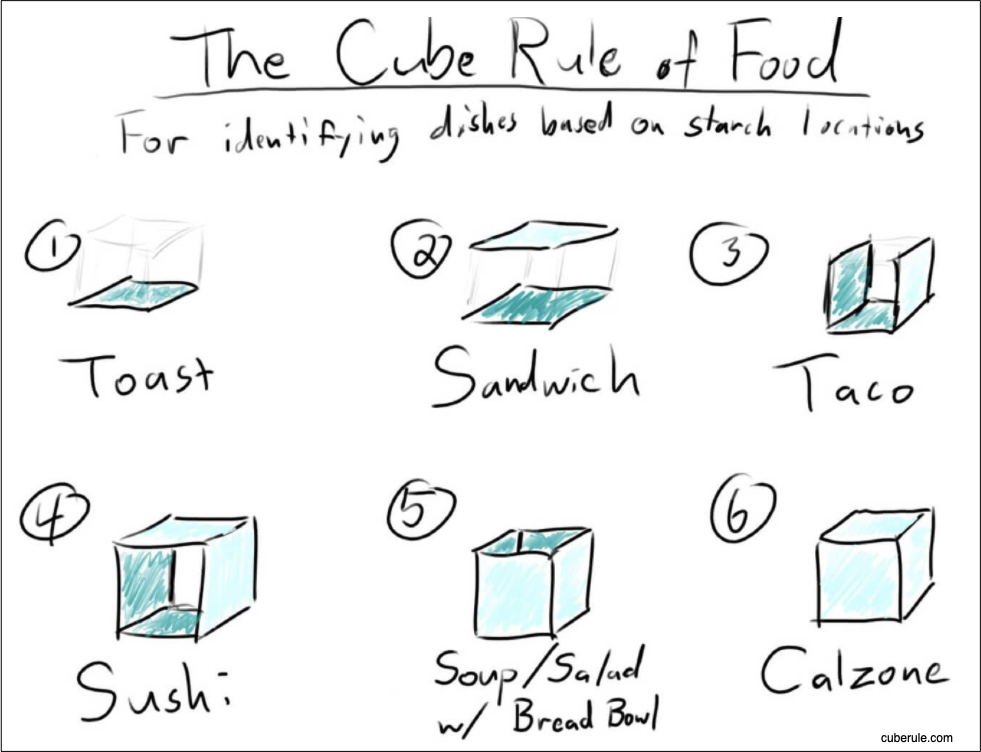 The Cube Rule of Food
For identifying dishes based on starch locations
1
Toast
2
Sandwich
3
Taco
4
Sushi
5
Soup/Salad
w/ Bread Bowl
6
Calzone
cuberule.com